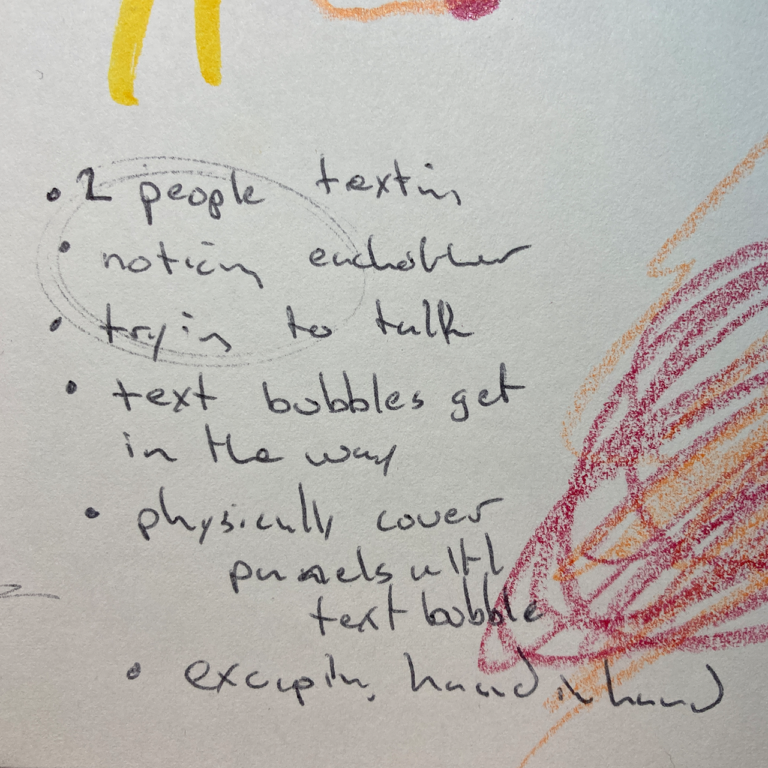 • 2 people textin
• noticin eachother
• tryin to talk
• text bubbles get
in the way
• physically cover
panels with
text bubble
• hand in hand